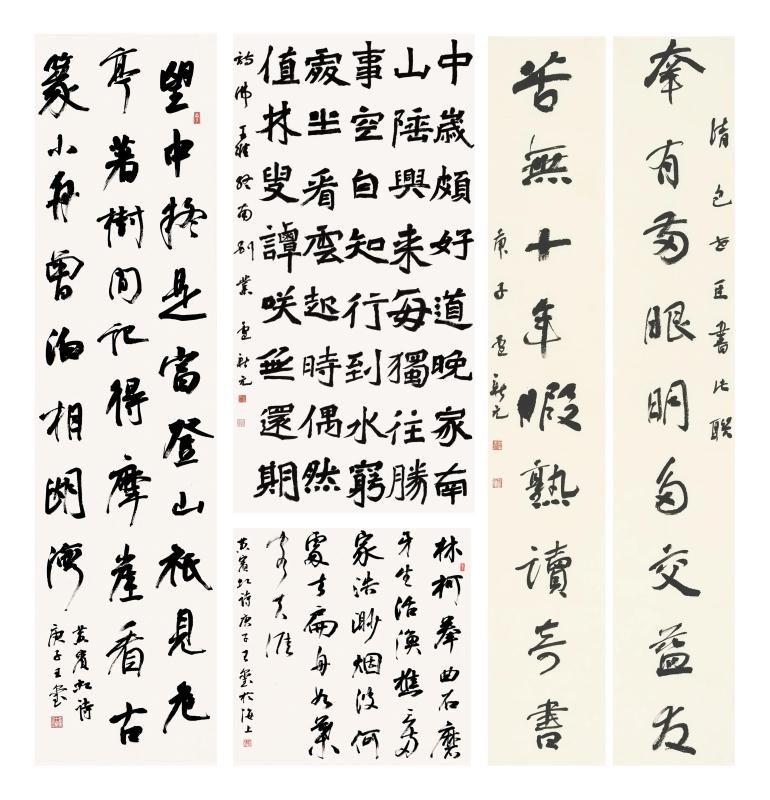 幸有兩眼明多交益友
清包世臣書此聯
苦無十年暇熟讀奇書
庚子盧新元
中歲頗好道晚家南
山陲興來每獨往勝
事空自知行到水窮
處坐看雲起時偶然
值林叟譚咲無還期
詩佛王維終南別業盧新元
林柯攀曲石磨
牙生活漁樵
家浩渺烟波何
處去扁舟如葉
寄天涯
黃賓虹詩庚子王於海上
望中是富登山祇見危
亭著樹間記得摩崖看古
篆小舟曾泊相湖灣
黃賓虹詩
庚子王